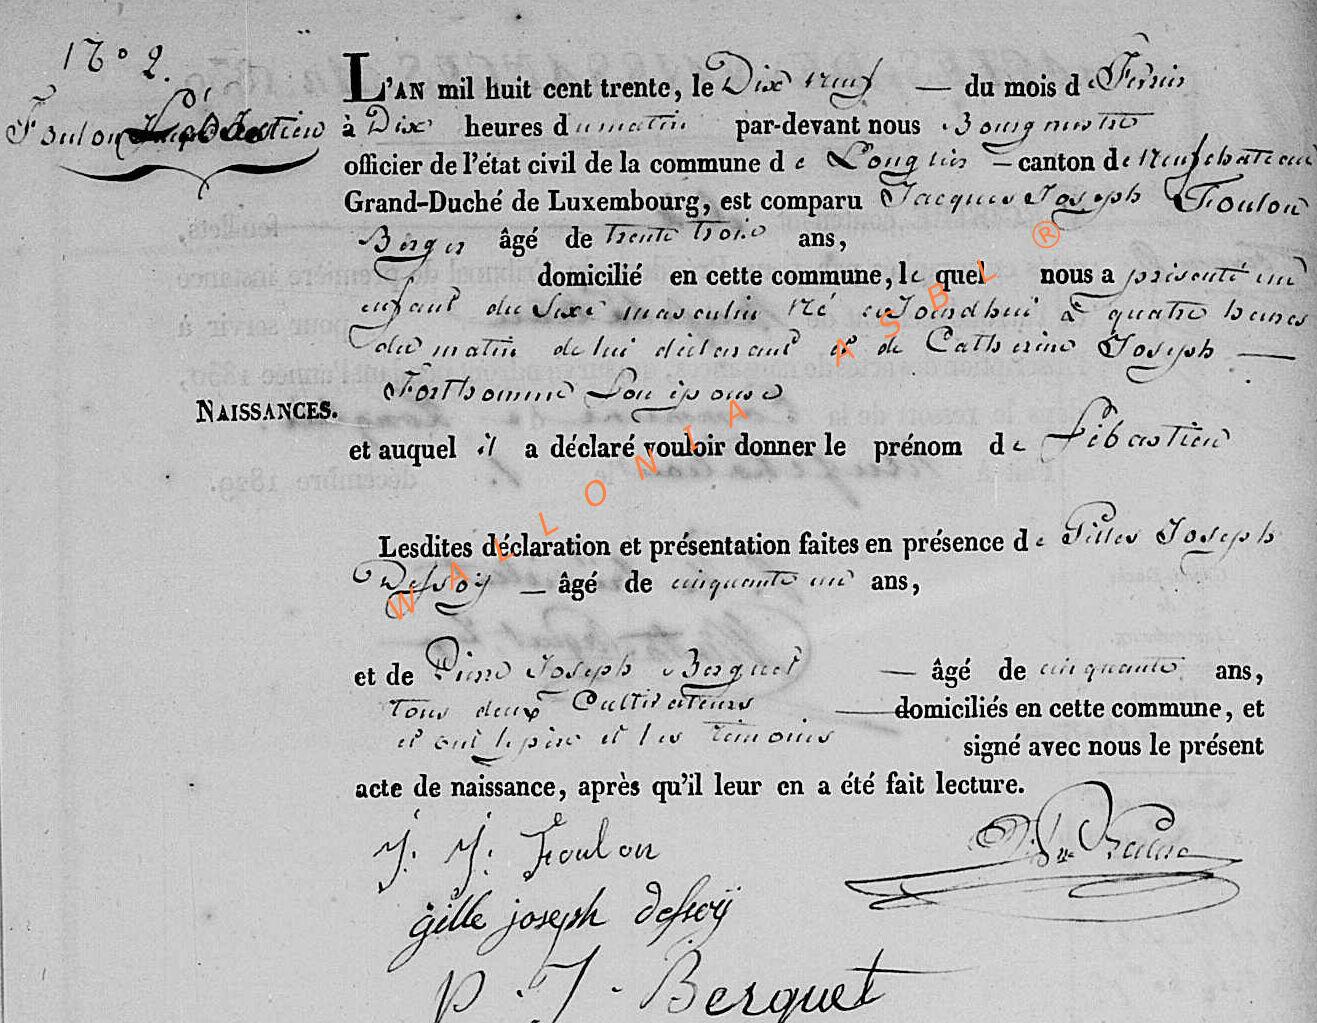 N° 2.
Foulon Sébastien
L'AN mil huit cent trente, le Dix neuf — du mois de Fevrier
à Dix heures du matin par-devant nous Bourgmestre
officier de l'état civil de la commune de Longlier – canton de Neufchateau
Grand-Duché de Luxembourg, est comparu Jacques Joseph Foulon
Berger âgé de trente trois ans,
domicilié en cette commune, le quel nous a présenté un
enfant du Sexe masculin né aujourdhui à quatre heures
du matin de lui déclarant et de Catherine Joseph —
Forthomme Son épouse
NAISSANCES.
et auquel il a déclaré vouloir donner le prénom de Sébastien
Lesdites déclaration et présentation faites en présence de Gilles Joseph
Dessoÿ — âgé de cinquante un ans,
et de Pierre Joseph Berquet — âgé de cinquante ans,
tous deux Cultivateurs — domiciliés en cette commune, et
et ont le père et les témoins signé avec nous le présent
acte de naissance, après qu'il leur en a été fait lecture.
J. J. Foulon
gille joseph dessoÿ
P. J. Berquet
WALLONIA ASBL ®